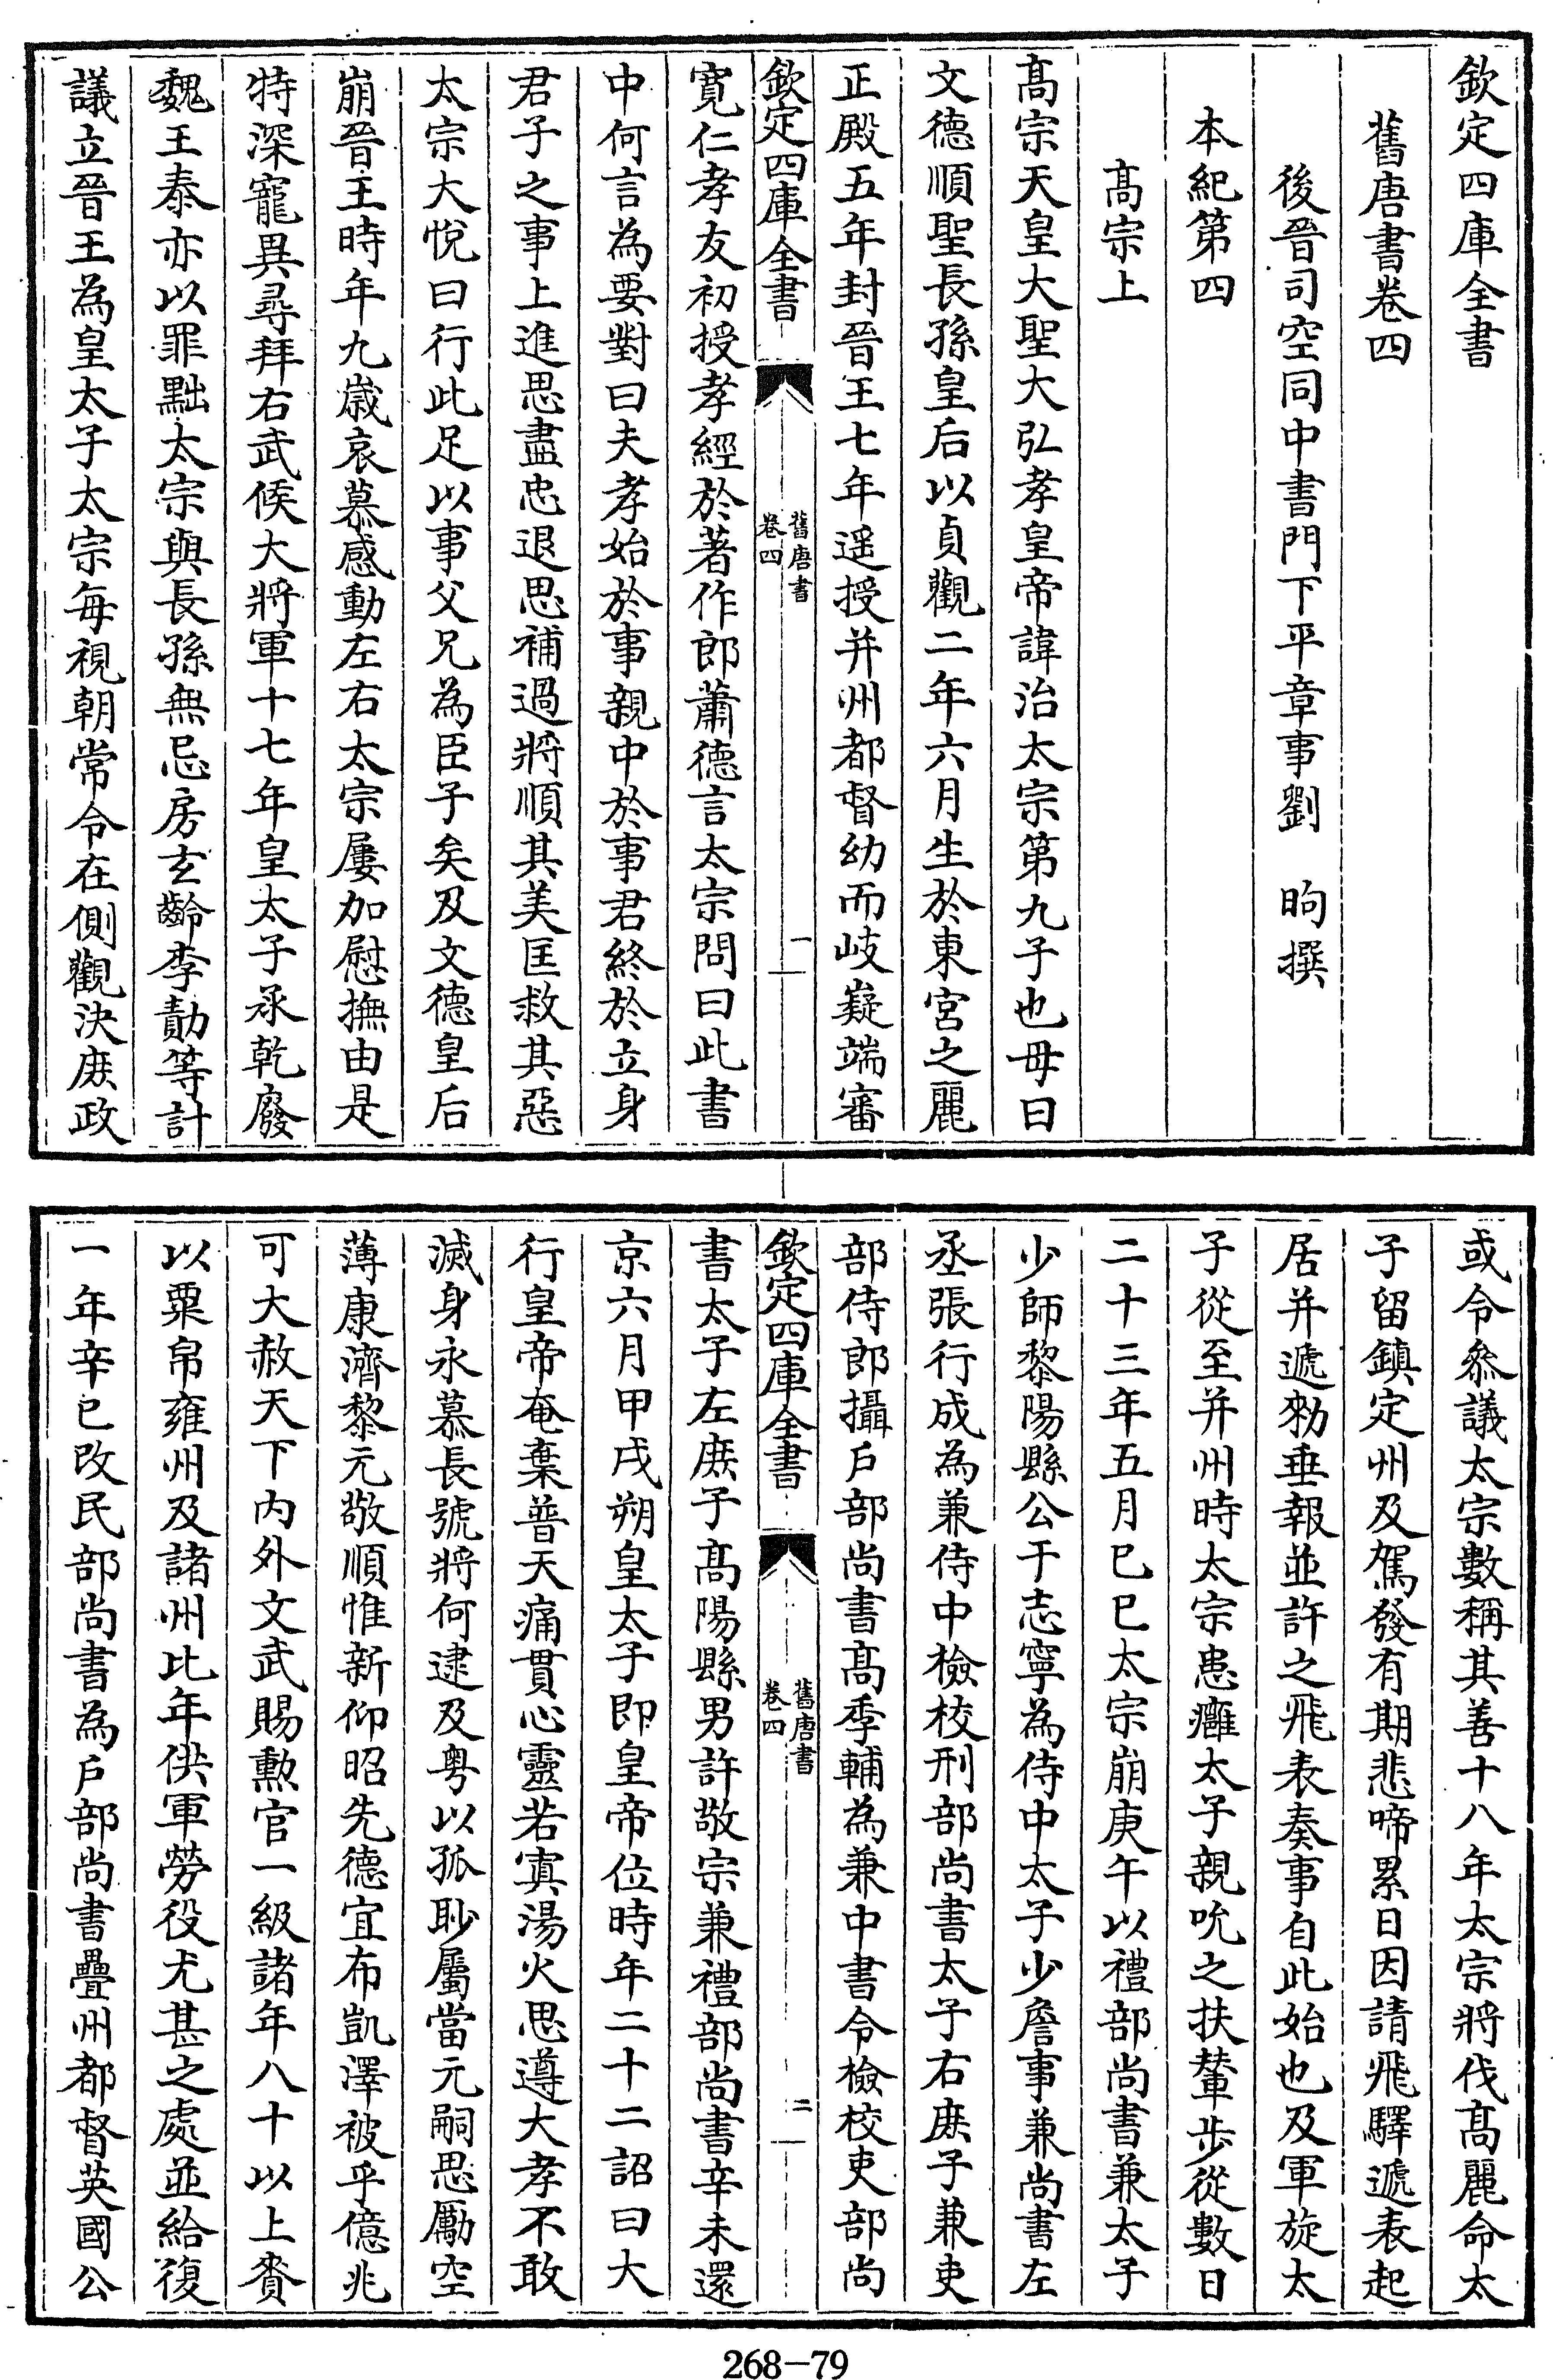 欽定四庫全書
舊唐書卷四
後晉司空同中書門下平章事劉昫撰
本紀第四
髙宗上
髙宗天皇大聖大弘孝皇帝諱治太宗第九子也母曰
文德順聖長孫皇后以貞觀二年六月生於東宮之麗
正殿五年封晉王七年遥授并州都督幼而岐嶷端審
欽定四庫全書
舊唐書
卷四
一
寛仁孝友初授孝經於著作郎蕭德言太宗問曰此書
中何言為要對曰夫孝始於事親中於事君終於立身
君子之事上進思盡忠退思補過將順其美匡救其惡
太宗大悅曰行此足以事父兄為臣子矣及文德皇后
崩晉王時年九歲哀慕感動左右太宗屢加慰撫由是
特深寵異尋拜右武候大將軍十七年皇太子承乾廢
魏王泰亦以罪黜太宗與長孫無忌房玄齡李勣等計
議立晉王為皇太子太宗每視朝常令在側觀決庶政
或令叅議太宗數稱其善十八年太宗將伐髙麗命太
子留鎮定州及駕發有期悲啼累日因請飛驛遞表起
居并遞勑垂報並許之飛表奏事自此始也及軍旋太
子從至并州時太宗患癰太子親吮之扶輦步從數日
二十三年五月己巳太宗崩庚午以禮部尚書兼太子
少師黎陽縣公于志寧為侍中太子少詹事兼尚書左
丞張行成為兼侍中檢校刑部尚書太子右庶子兼吏
部侍郎攝戶部尚書髙季輔為兼中書令檢校吏部尚
欽定四庫全書
舊唐書
卷四
二
書太子左庶子髙陽縣男許敬宗兼禮部尚書辛未還
京六月甲戌朔皇太子即皇帝位時年二十二詔曰大
行皇帝奄棄普天痛貫心靈若寘湯火思遵大孝不敢
滅身永慕長號將何逮及粤以孤眇屬當元嗣思勵空
薄康濟黎元敬順惟新仰昭先德宜布凱澤被乎億兆
可大赦天下內外文武賜勲官一級諸年八十以上賚
以粟帛雍州及諸州比年供軍勞役尤甚之處並給復
一年辛巳改民部尚書為戶部尚書疊州都督英國公
268-79